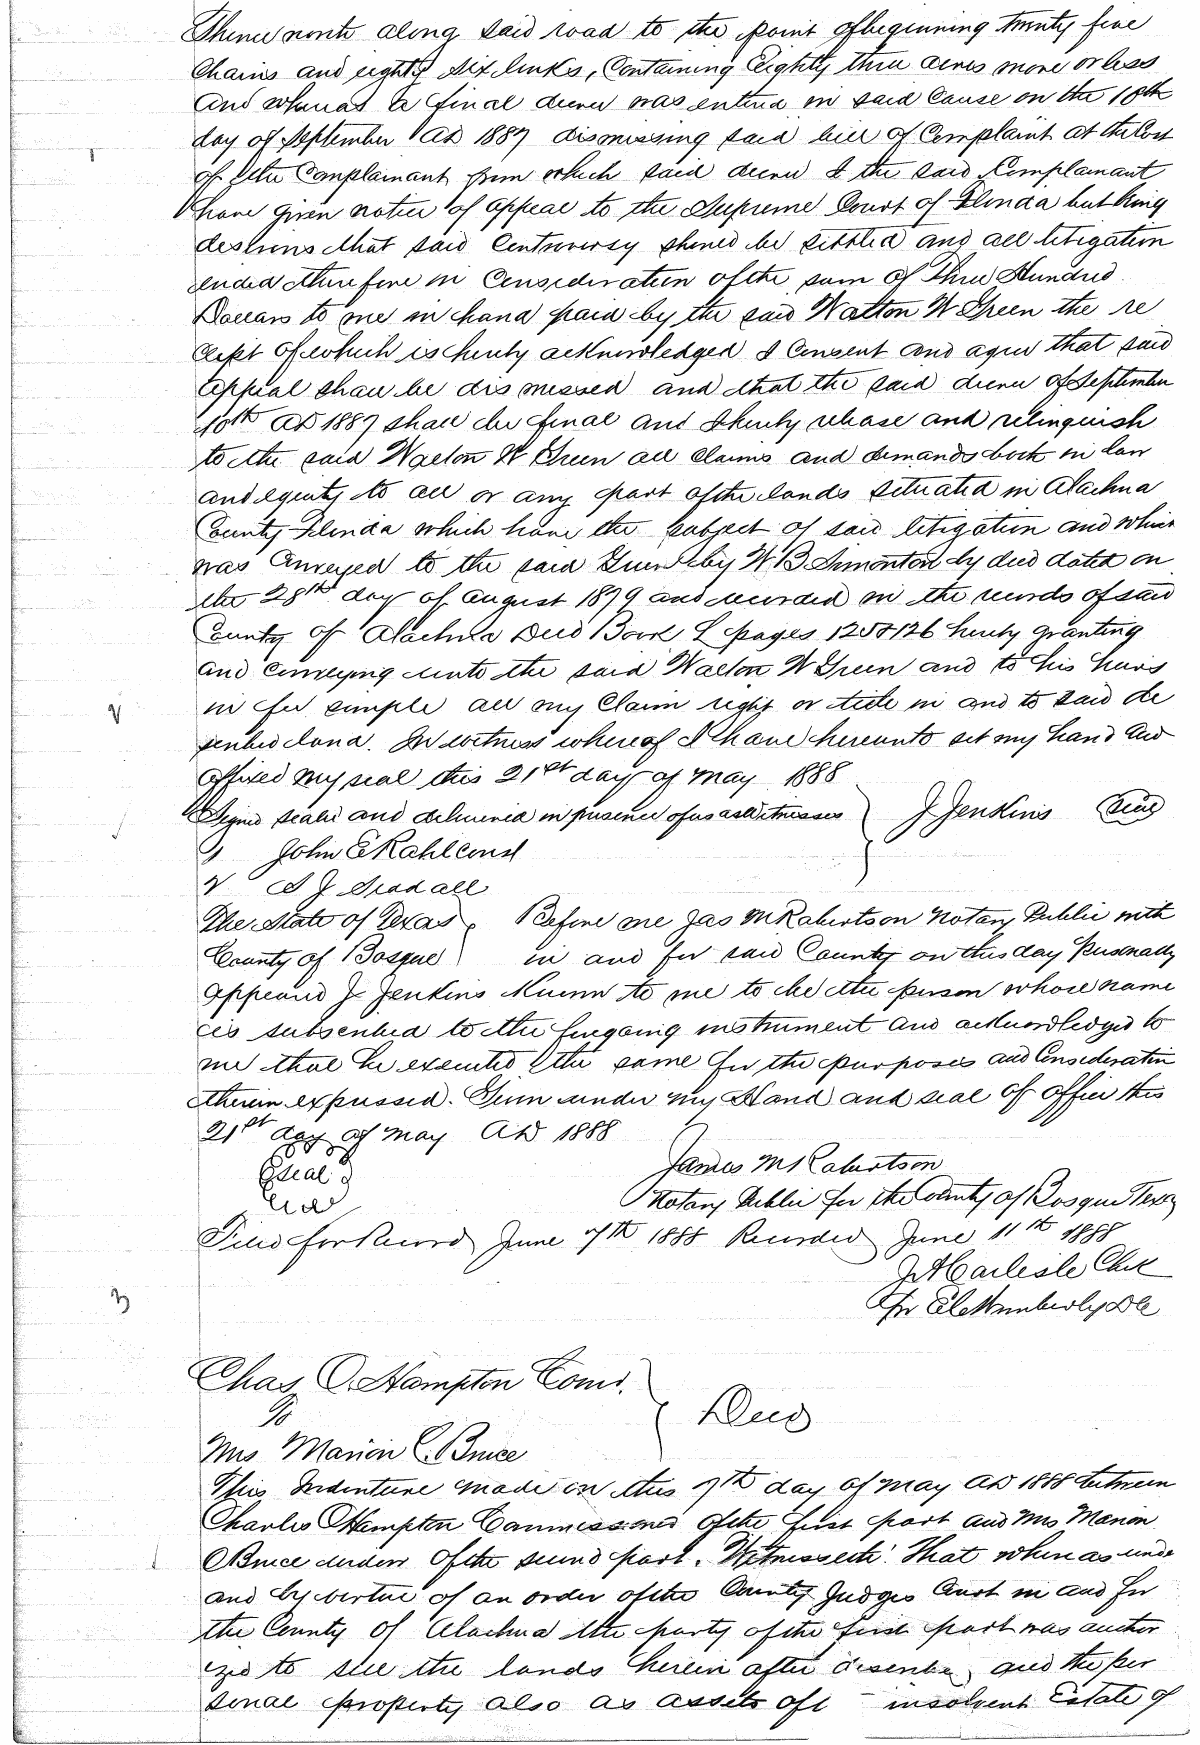 Thence north along said road to the point of beginning twenty five
Chains and eighty six links, Containing Eighty three acres more or less
and whereas a final decree was entered in said Cause on the 10th
day of September AD 1887 dismissing said bill of Complaint at the Cost
of the Complainant from which said decree I the said Complainant
have given notice of appeal to the Supreme Court of Florida but being
desirous that said Controversy should be settled and all litigation
ended therefore in Consideration of the sum of Three Hundred
Dollars to me in hand paid by the said Walton W Green the re
ceipt of which is hereby acknowledged I Consent and agree that said
appeal shall be dismissed and that the said decree of September
10th AD 1887 shall be final and I hereby release and relinquish
to the said Walton W Green all Claims and demands both in law
and equity to all or any part of the lands situated in Alachua
County Florida which have the subject of said litigation and which
was Conveyed to the said Green by W B Simonton by deed dated on
the 28th day of August 1879 and recorded in the records of said
County of Alachua Deed Book L pages 125&126 hereby granting
and Conveying unto the said Walton W Green and to his heirs
in fee simple all my Claim right or title in and to said de
scribed land. In witness whereof I have hereunto set my hand and
affixed my seal this 21st day of May 1888
Signed sealed and delivered in presence of us as Witnesses J Jenkins Seal
John E Kahl
S J
The State of Texas Before me Jas M Robertson Notary Public with
County of Bosque in and for said County on this day Personally
Appeared J Jenkins Known to me to be the person whose name
is subscribed to the foregoing instrument and acknowledged to
me that he executed the same for the purposes and Consideration
therein expressed. Given under my Hand and seal of office this
21st day of May AD 1888
Seal James M Robertson
Notary Public for the County of Bosque Texas
Filed for Record June 7th 1888 Recorded June 11th 1888
J A Carlisle Clk
Per
Chas O. Hampton Coms.
To Deed
Mrs Marion C. Bruce
This Indenture made on this 7th day of May AD 1888 between
Charles O Hampton Commissioner of the first part and Mrs Marion
C Bruce widow of the second part. Witnesseth: That whereas unde
and by virtue of an order of the County Judges Court in and for
the County of Alachua the party of the first part was author
ized to sell the lands herein after describe and the per
sonal property also as assets of insolvent Estate of